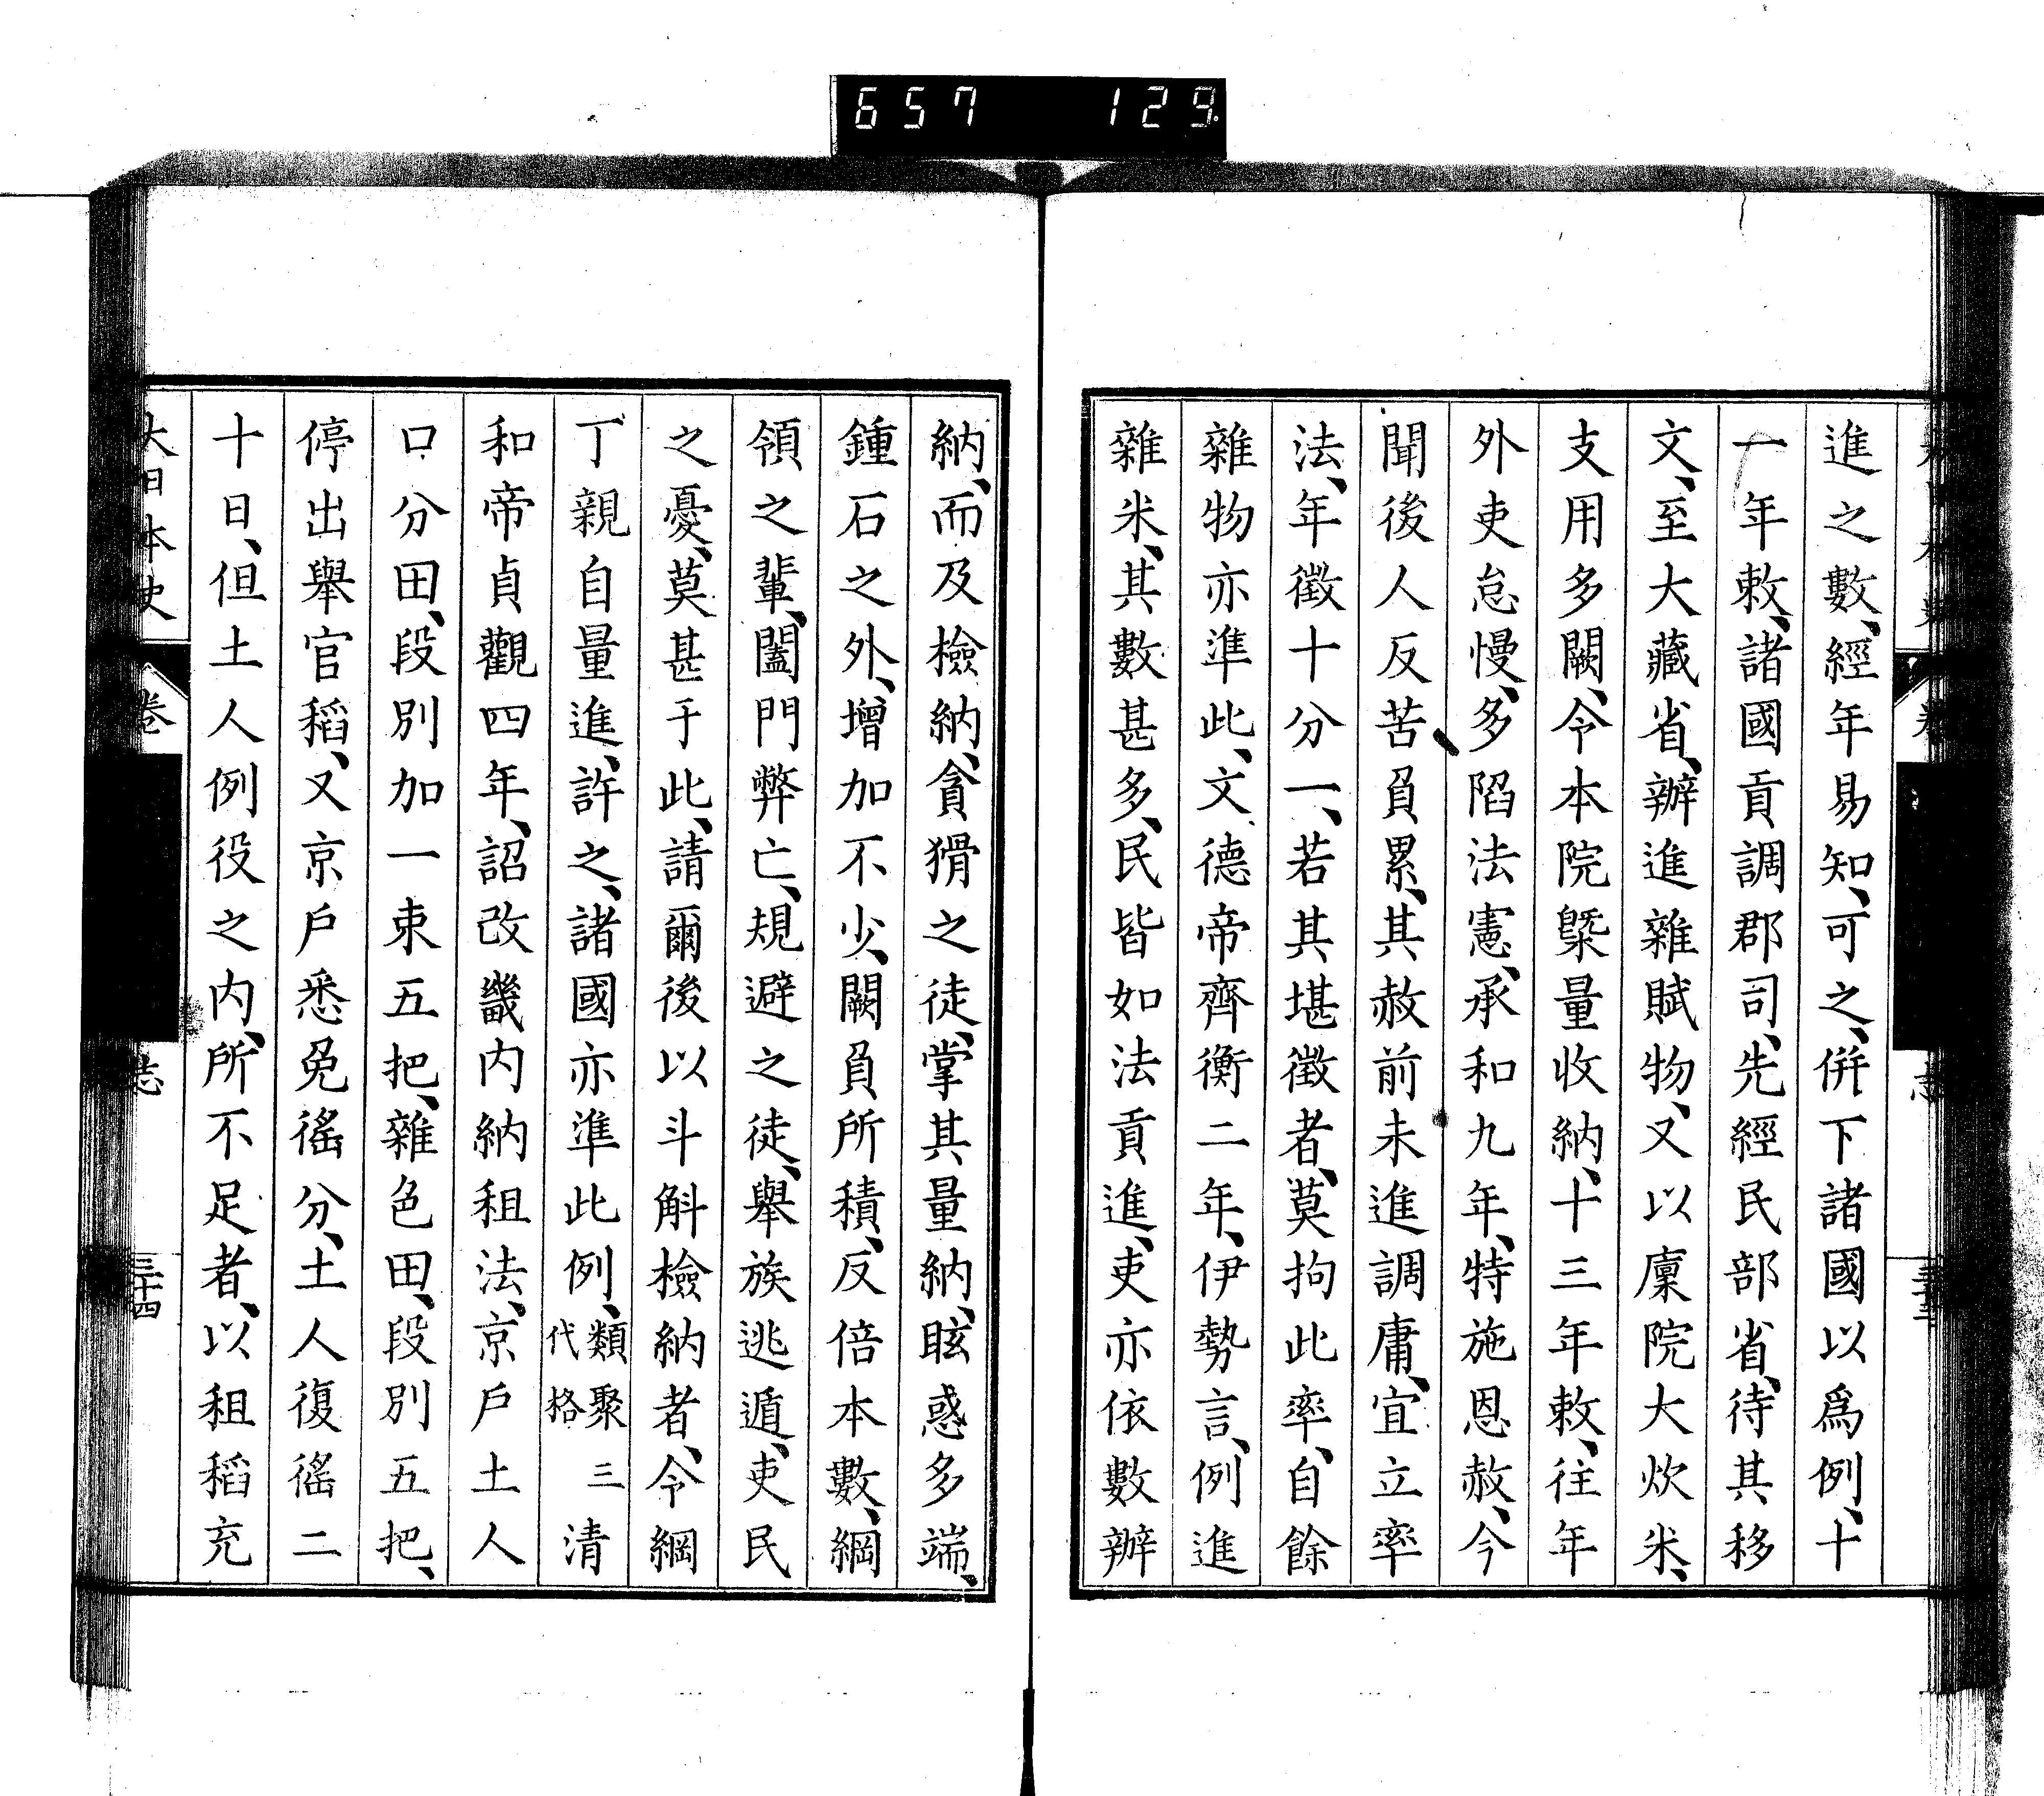 657 129
進之數、經年易知、可之、併下諸國以爲例、十
一年敕、諸國貢調郡司、先經民部省、待其移
文、至大藏省、辦進雜賦物、又以廩院大炊米、
支用多闕、令本院槩量收納、十三年敕、往年
外吏怠慢、多陷法憲、承和九年、特施恩赦、今
聞後人反苦負累、其赦前未進調庸、宜立率
法、年徵十分一、若其堪徵者、莫拘此率、自餘
雜物亦準此、文德帝齊衡二年、伊勢言、例進
雜米、其數甚多、民皆如法貢進、吏亦依數辦
納、而及檢納、貪猾之徒、掌其量納、眩惑多端、
鍾石之外、增加不少、闕負所積、反倍本數、綱
領之輩、闔門弊亡、規避之徒、舉族逃遁、吏民
之憂、莫甚于此、請爾後以斗斛檢納者、令綱
丁親自量進、許之、諸國亦準此例、類聚三代格 清
和帝貞觀四年、詔改畿內納租法、京戶土人
口分田、段別加一束五把、雜色田、段別五把、
停出舉官稻、又京戶悉免徭分、土人復徭二
十日、但土人例役之內、所不足者、以租稻充
大日本史 卷 志 三十四